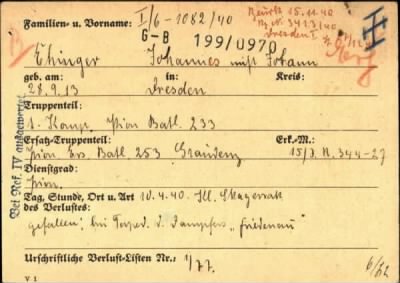 I/6-1082/40
Familien- u. Vorname:
G-B 199/0970
Beurk. 15.11.40
Dresden I
Ehinger Johannes mißt Johann
geb. am: in: Kreis:
28.9.13 Dresden
Truppenteil:
1. Komp. Pion Batl. 233
Ersatz-Truppenteil: Erk.-M.:
Pion. Ers. Batl. 253 Graudenz 15/3. R. 344-27
Dienstgrad:
Pion.
Tag, Stunde, Ort u. Art 10.4.40. Ill. Skagerrak
des Verlustes:
gefallen, bei Torped. d. Dampfers „Friedenau"
Urschriftliche Verlust-Listen Nr.: 1/77.
V 1
6/62
Bei Ref. IV ausgewertet